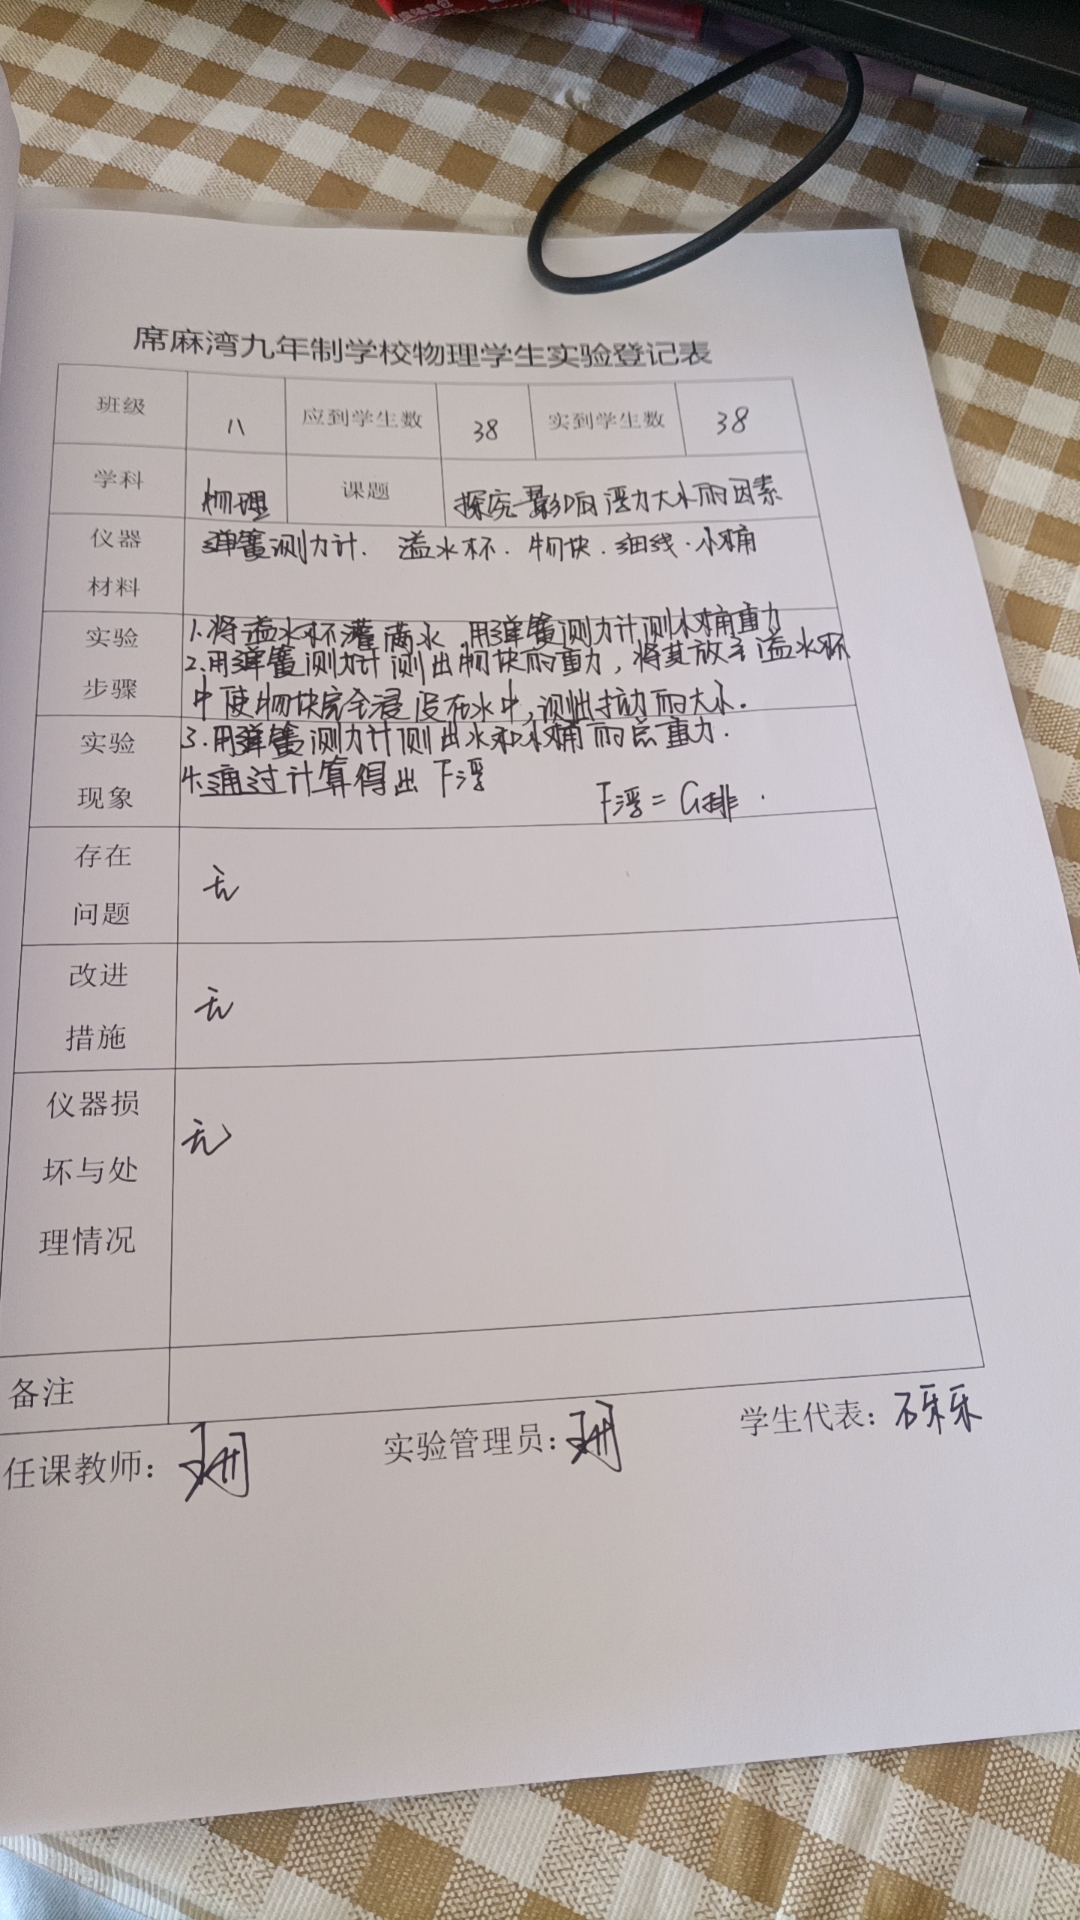 席麻湾九年制学校物理学生实验登记表
班级 八 应到学生数 38 实到学生数 38
学科 物理 课题 探究影响浮力大小的因素
仪器材料 弹簧测力计. 溢水杯. 物块. 细线. 小桶
实验步骤 1.将溢水杯灌满水,用弹簧测力计测小桶重力
2.用弹簧测力计测出物块的重力,将其放至溢水杯
中使物块完全浸没在水中,测出拉力的大小.
实验现象 3.用弹簧测力计测出水和小桶的总重力.
4.通过计算得出F浮
F浮=G排.
存在问题 无
改进措施 无
仪器损坏与处理情况 无
备注
任课教师: 实验管理员: 学生代表: